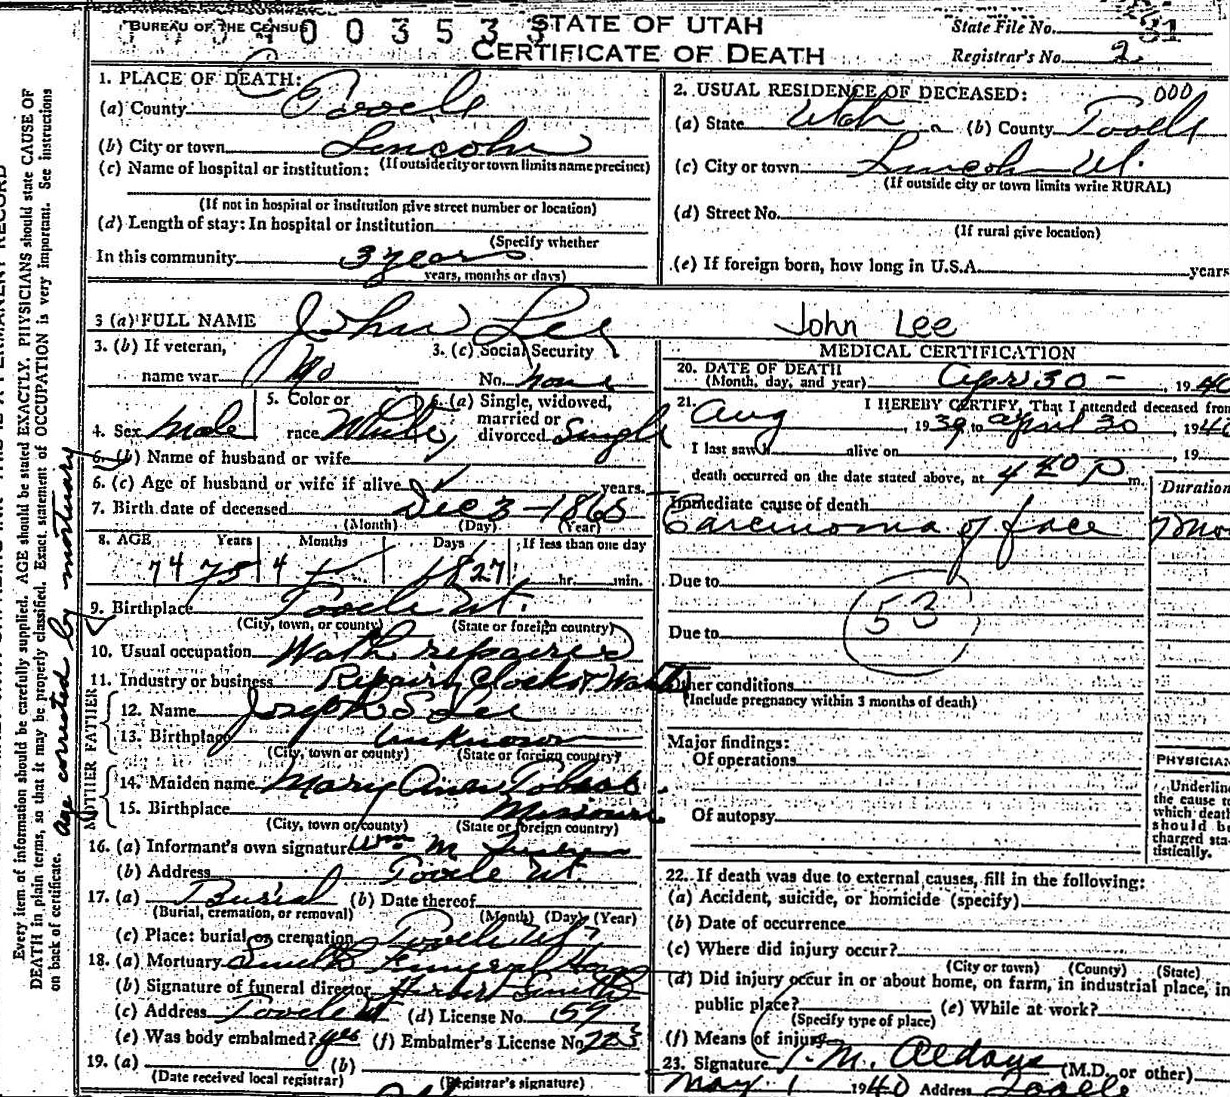 BUREAU OF THE CENSUS
003533
STATE OF UTAH
CERTIFICATE OF DEATH
State File No. 81
Registrar's No. 2
1. PLACE OF DEATH:
(a) County Tooele
(b) City or town Lincoln
(If outside city or town limits name precinct)
(c) Name of hospital or institution:
(If not in hospital or institution give street number or location)
(d) Length of stay: In hospital or institution
(Specify whether
In this community 3 years
years, months or days)
2. USUAL RESIDENCE OF DECEASED: 000
(a) State Utah (b) County Tooele
(c) City or town Lincoln Ut.
(If outside city or town limits write RURAL)
(d) Street No.
(If rural give location)
(e) If foreign born, how long in U.S.A. years
3 (a) FULL NAME John Lee John Lee
3. (b) If veteran, name war No
3. (c) Social Security No. none
4. Sex Male
5. Color or race White
6. (a) Single, widowed, married or divorced Single
6. (b) Name of husband or wife
6. (c) Age of husband or wife if alive years.
7. Birth date of deceased Dec 3 - 1865
(Month) (Day) (Year)
8. AGE Years Months Days If less than one day
74 75 4 27 hr. min.
9. Birthplace Tooele Ut.
(City, town, or county) (State or foreign country)
10. Usual occupation Wath repairer
11. Industry or business Repairing Clocks &
FATHER
12. Name Joseph S Lee
13. Birthplace unknown
(City, town or county) (State or foreign country)
MOTHER
14. Maiden name Mary Ann
15. Birthplace Missouri
(City, town or county) (State or foreign country)
16. (a) Informant's own signature Wm M
(b) Address Tooele Ut.
17. (a) Burial (b) Date thereof
(Burial, cremation, or removal) (Month) (Day) (Year)
(c) Place: burial or cremation Tooele Ut
18. (a) Mortuary Smith Funeral Home
(b) Signature of funeral director Herbert Smith
(c) Address Tooele Ut (d) License No. 157
(e) Was body embalmed? yes (f) Embalmer's License No. 223
19. (a) (b)
(Date received local registrar) (Registrar's signature)
MEDICAL CERTIFICATION
20. DATE OF DEATH
(Month, day, and year) Apr 30 - , 1940
21. I HEREBY CERTIFY, That I attended deceased from
Aug , 1939, to april 30 , 1940
I last saw alive on , 19
death occurred on the date stated above, at 4 40 P m.
Duration
Immediate cause of death
Carcinoma of face 7 mo
Due to
53
Due to
Other conditions
(Include pregnancy within 3 months of death)
Major findings:
Of operations
Of autopsy
PHYSICIAN
Underline
the cause to
which death
should be
charged sta-
tistically.
22. If death was due to external causes, fill in the following:
(a) Accident, suicide, or homicide (specify)
(b) Date of occurrence
(c) Where did injury occur?
(City or town) (County) (State)
(d) Did injury occur in or about home, on farm, in industrial place, in
public place? (e) While at work?
(Specify type of place)
(f) Means of injury
23. Signature J. M. Aldous (M.D. or other)
May 1 1940 Address Tooele
Every item of information should be carefully supplied. AGE should be stated EXACTLY. PHYSICIANS should state CAUSE OF
DEATH in plain terms, so that it may be properly classified. Exact statement of OCCUPATION is very important. See instructions
on back of certificate.
age corrected by mortuary